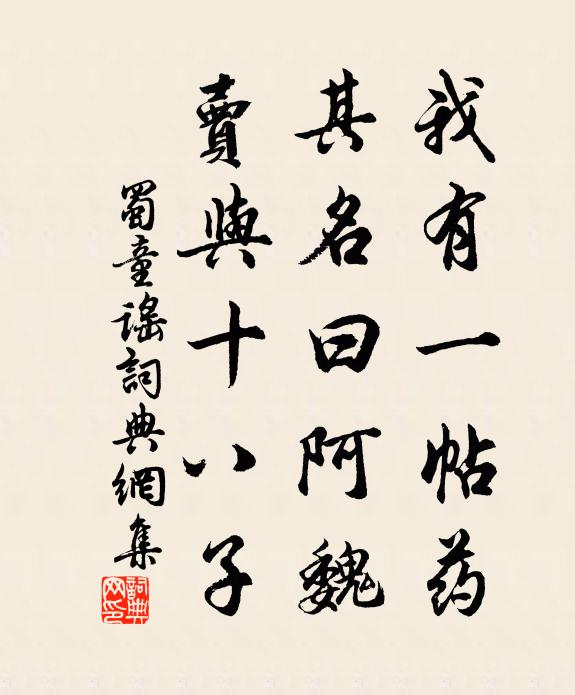 我有一帖药
其名曰阿魏
賣與十八子
蜀童謠詞典網集
詞典网印